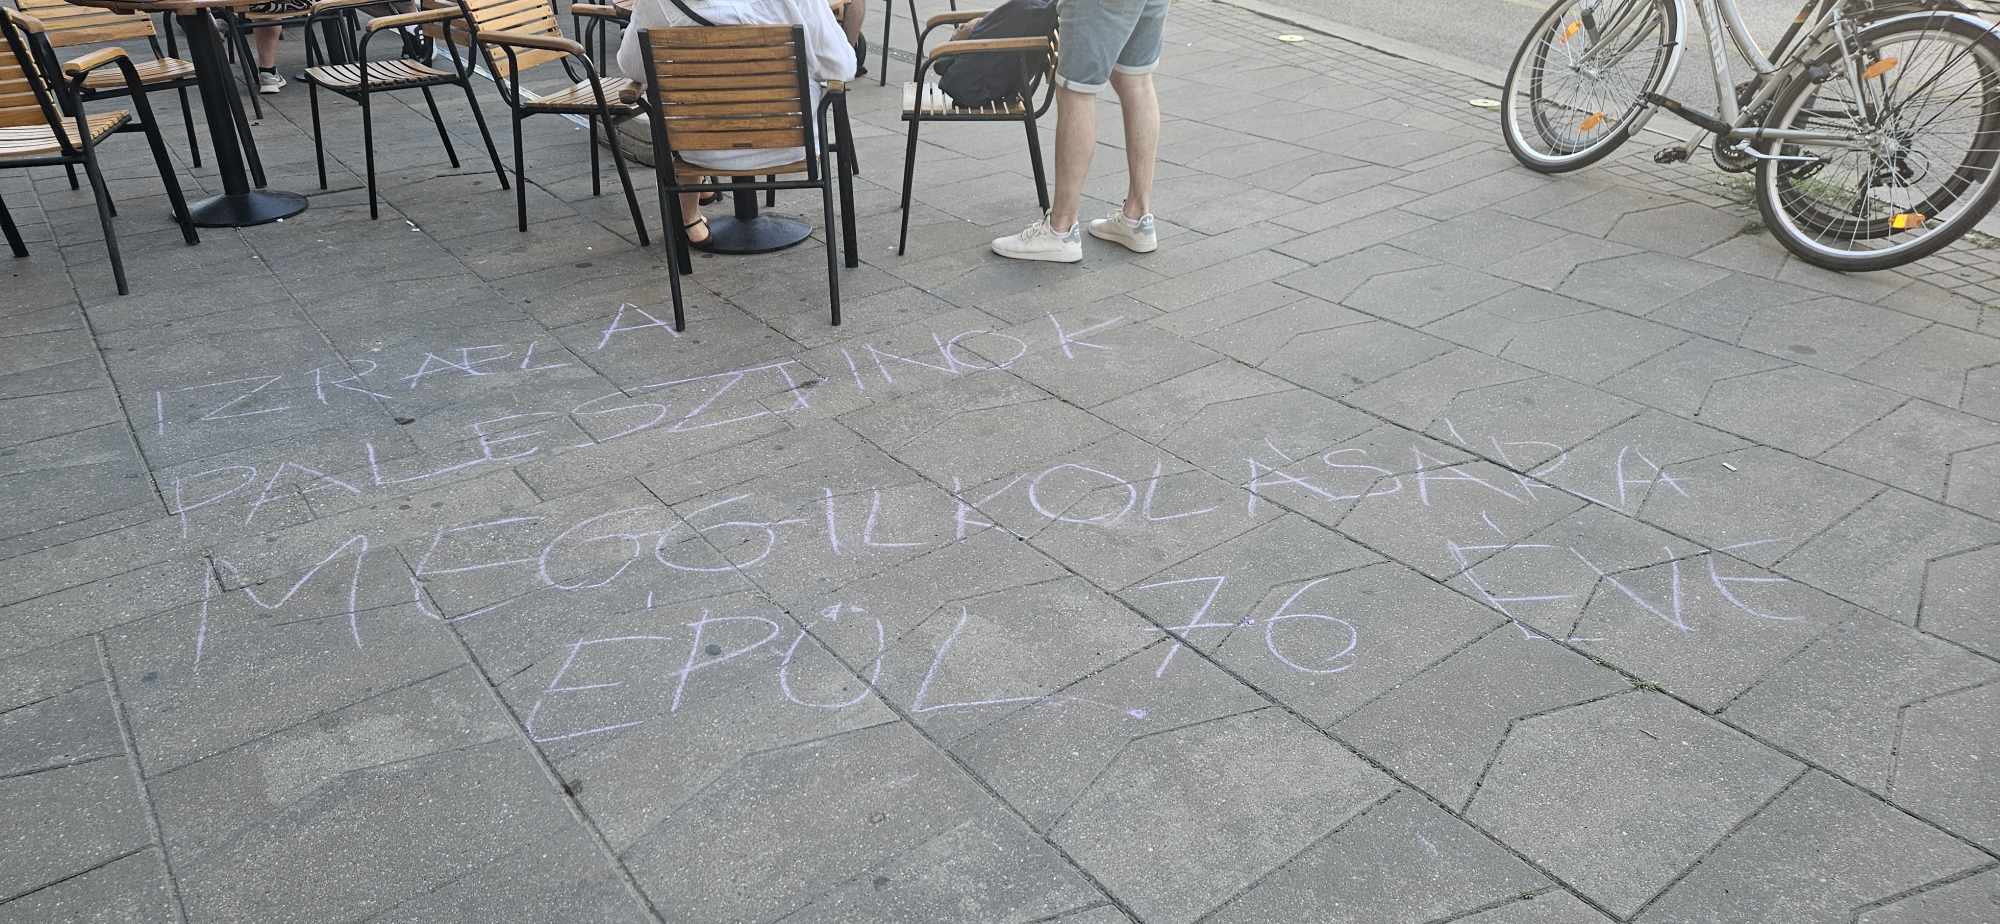 IZRAEL A
PALESZTINOK
MEGGYILKOLÁSÁRA
ÉPÜL 76 ÉVE